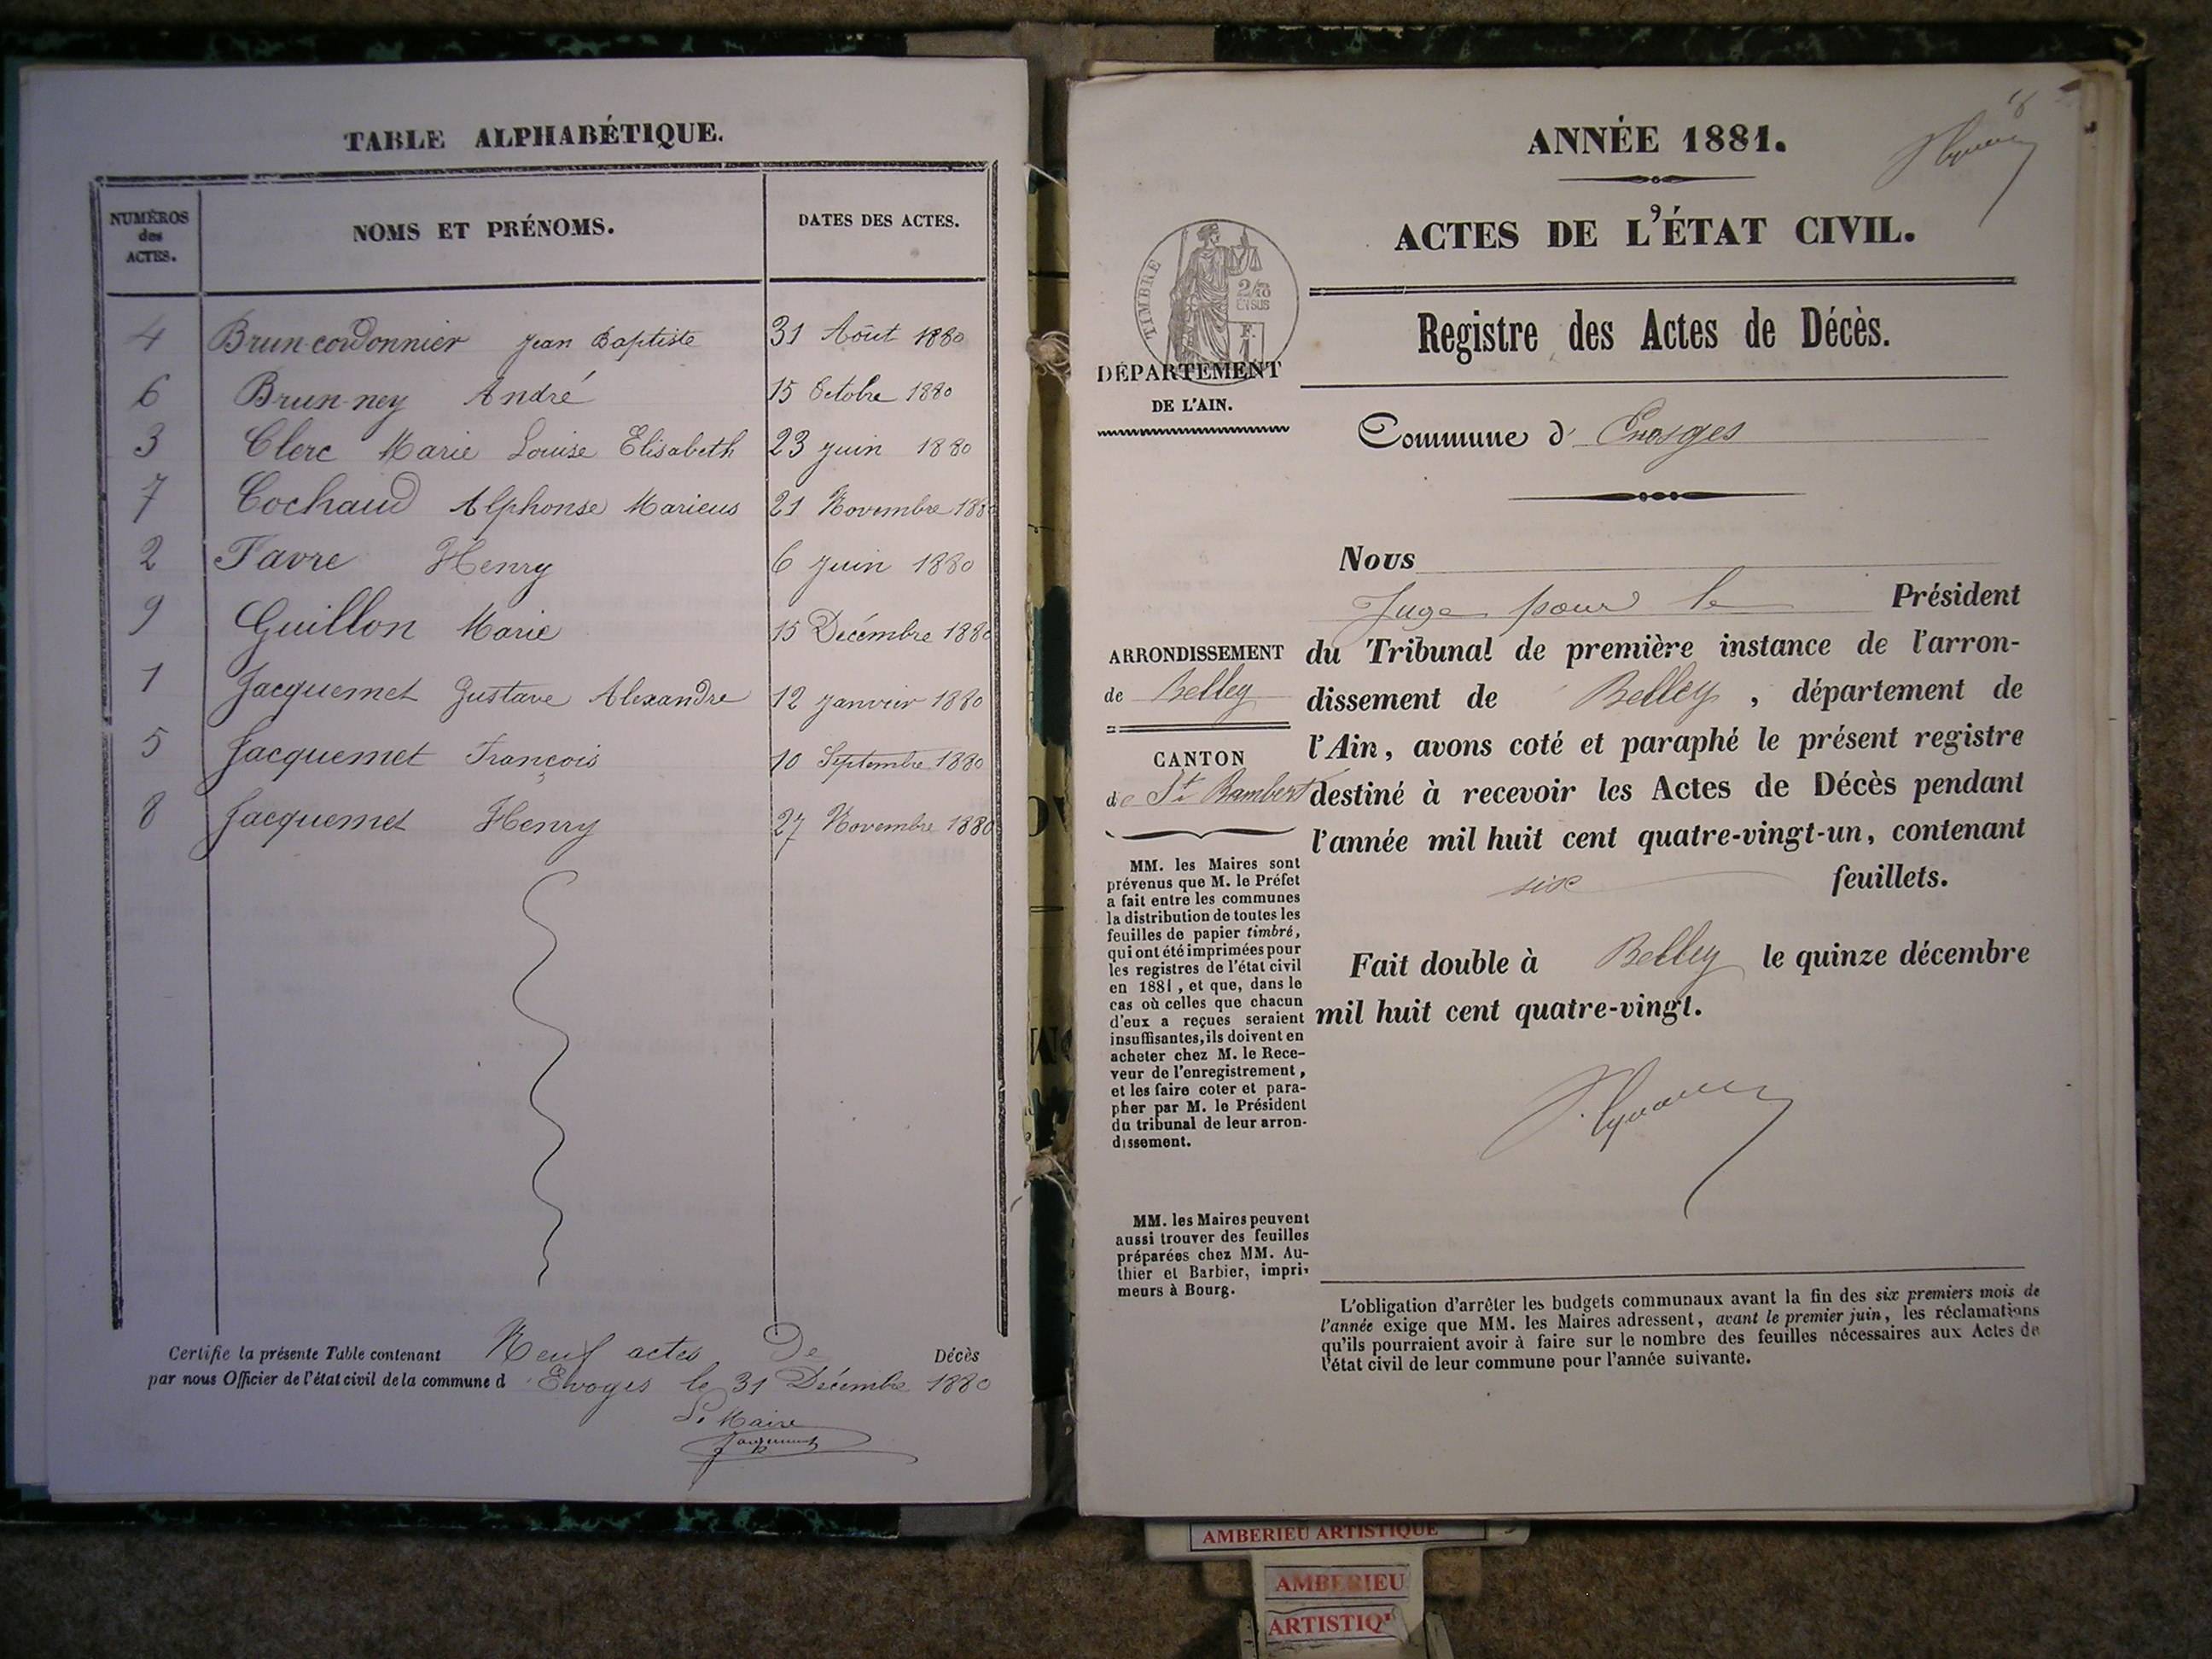 TABLE ALPHABÉTIQUE.
NUMÉROS
des
ACTES.
NOMS ET PRÉNOMS.
DATES DES ACTES.
4 Brun cordonnier Jean Baptiste 31 Août 1880
6 Brun-ney André 15 Octobre 1880
3 Clerc Marie Louise Elisabeth 23 Juin 1880
7 Cochaud Alphonse Marieus 21 Novembre 1880
2 Favre Henry 6 Juin 1880
9 Guillon Marie 15 Décémbre 1880
1 Jacquemet Gustave Alexandre 12 Janvier 1880
5 Jacquemet François 10 Septembre 1880
8 Jacquemet Henry 27 Novembre 1880
Certifie la présente Table contenant Neuf actes De Décès
par nous Officier de l'état civil de la commune d'Evoges le 31 Décembre 1880
Le Maire
Jacquemet
ANNÉE 1881.
ACTES DE L'ÉTAT CIVIL.
TIMBRE
2/10
EN SUS
F.
1
DÉPARTEMENT
DE L'AIN.
Registre des Actes de Décès.
Commune d' Evosges
Nous
Juge pour le Président
du Tribunal de première instance de l'arron-
dissement de Belley, département de
l'Ain, avons coté et paraphé le présent registre
destiné à recevoir les Actes de Décès pendant
l'année mil huit cent quatre-vingt-un, contenant
six feuillets.
Fait double à Belley le quinze décembre
mil huit cent quatre-vingt.
ARRONDISSEMENT
de Belley
CANTON
de St Rambert
MM. les Maires sont
prévenus que M. le Préfet
a fait entre les communes
la distribution de toutes les
feuilles de papier timbré,
qui ont été imprimées pour
les registres de l'état civil
en 1881, et que, dans le
cas où celles que chacun
d'eux a reçues seraient
insuffisantes, ils doivent en
acheter chez M. le Rece-
veur de l'enregistrement,
et les faire coter et para-
pher par M. le Président
du tribunal de leur arron-
dissement.
MM. les Maires peuvent
aussi trouver des feuilles
préparées chez MM. Au-
thier et Barbier, impri-
meurs à Bourg.
L'obligation d'arrêter les budgets communaux avant la fin des six premiers mois de
l'année exige que MM. les Maires adressent, avant le premier juin, les réclamations
qu'ils pourraient avoir à faire sur le nombre des feuilles nécessaires aux Actes de
l'état civil de leur commune pour l'année suivante.
AMBERIEU ARTISTIQUE
AMBERIEU
ARTISTIQ